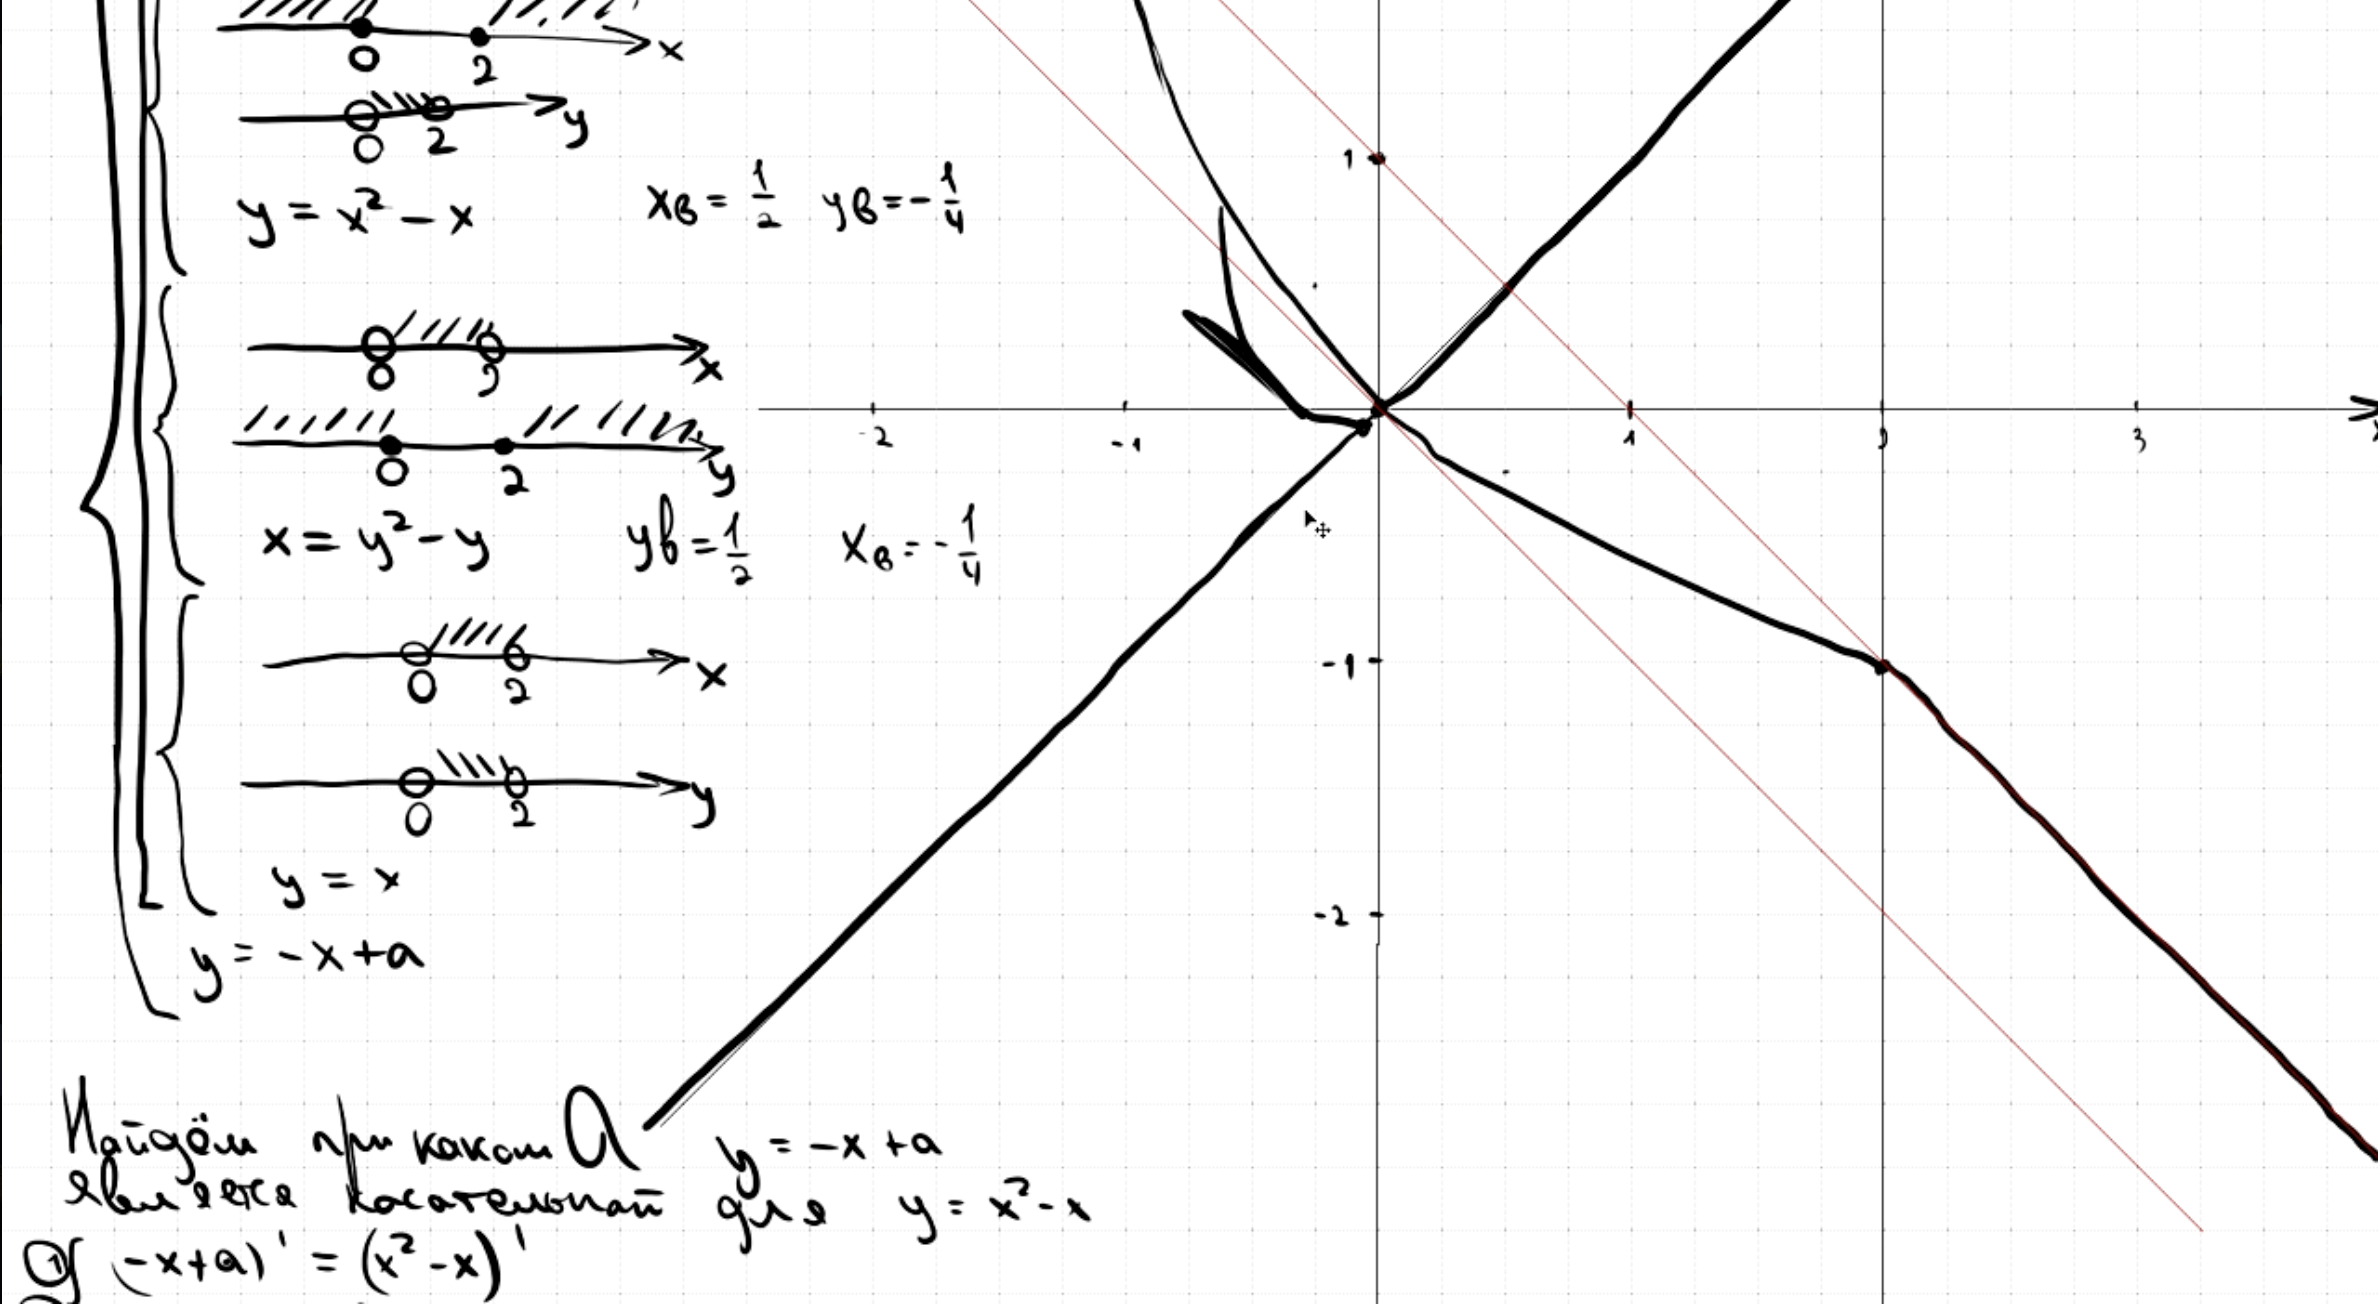 0 2 x
0 2 y
y = x² - x xв = 1/2 yв = -1/4
0 2 x
0 2 y
x = y² - y yв = 1/2 xв = -1/4
0 2 x
0 2 y
y = x
y = -x + a
1
-2 -1 1 2 3 x
-1
-2
Найдём при каком a y = -x + a
является касательной для y = x² - x
(-x+a)' = (x² - x)'